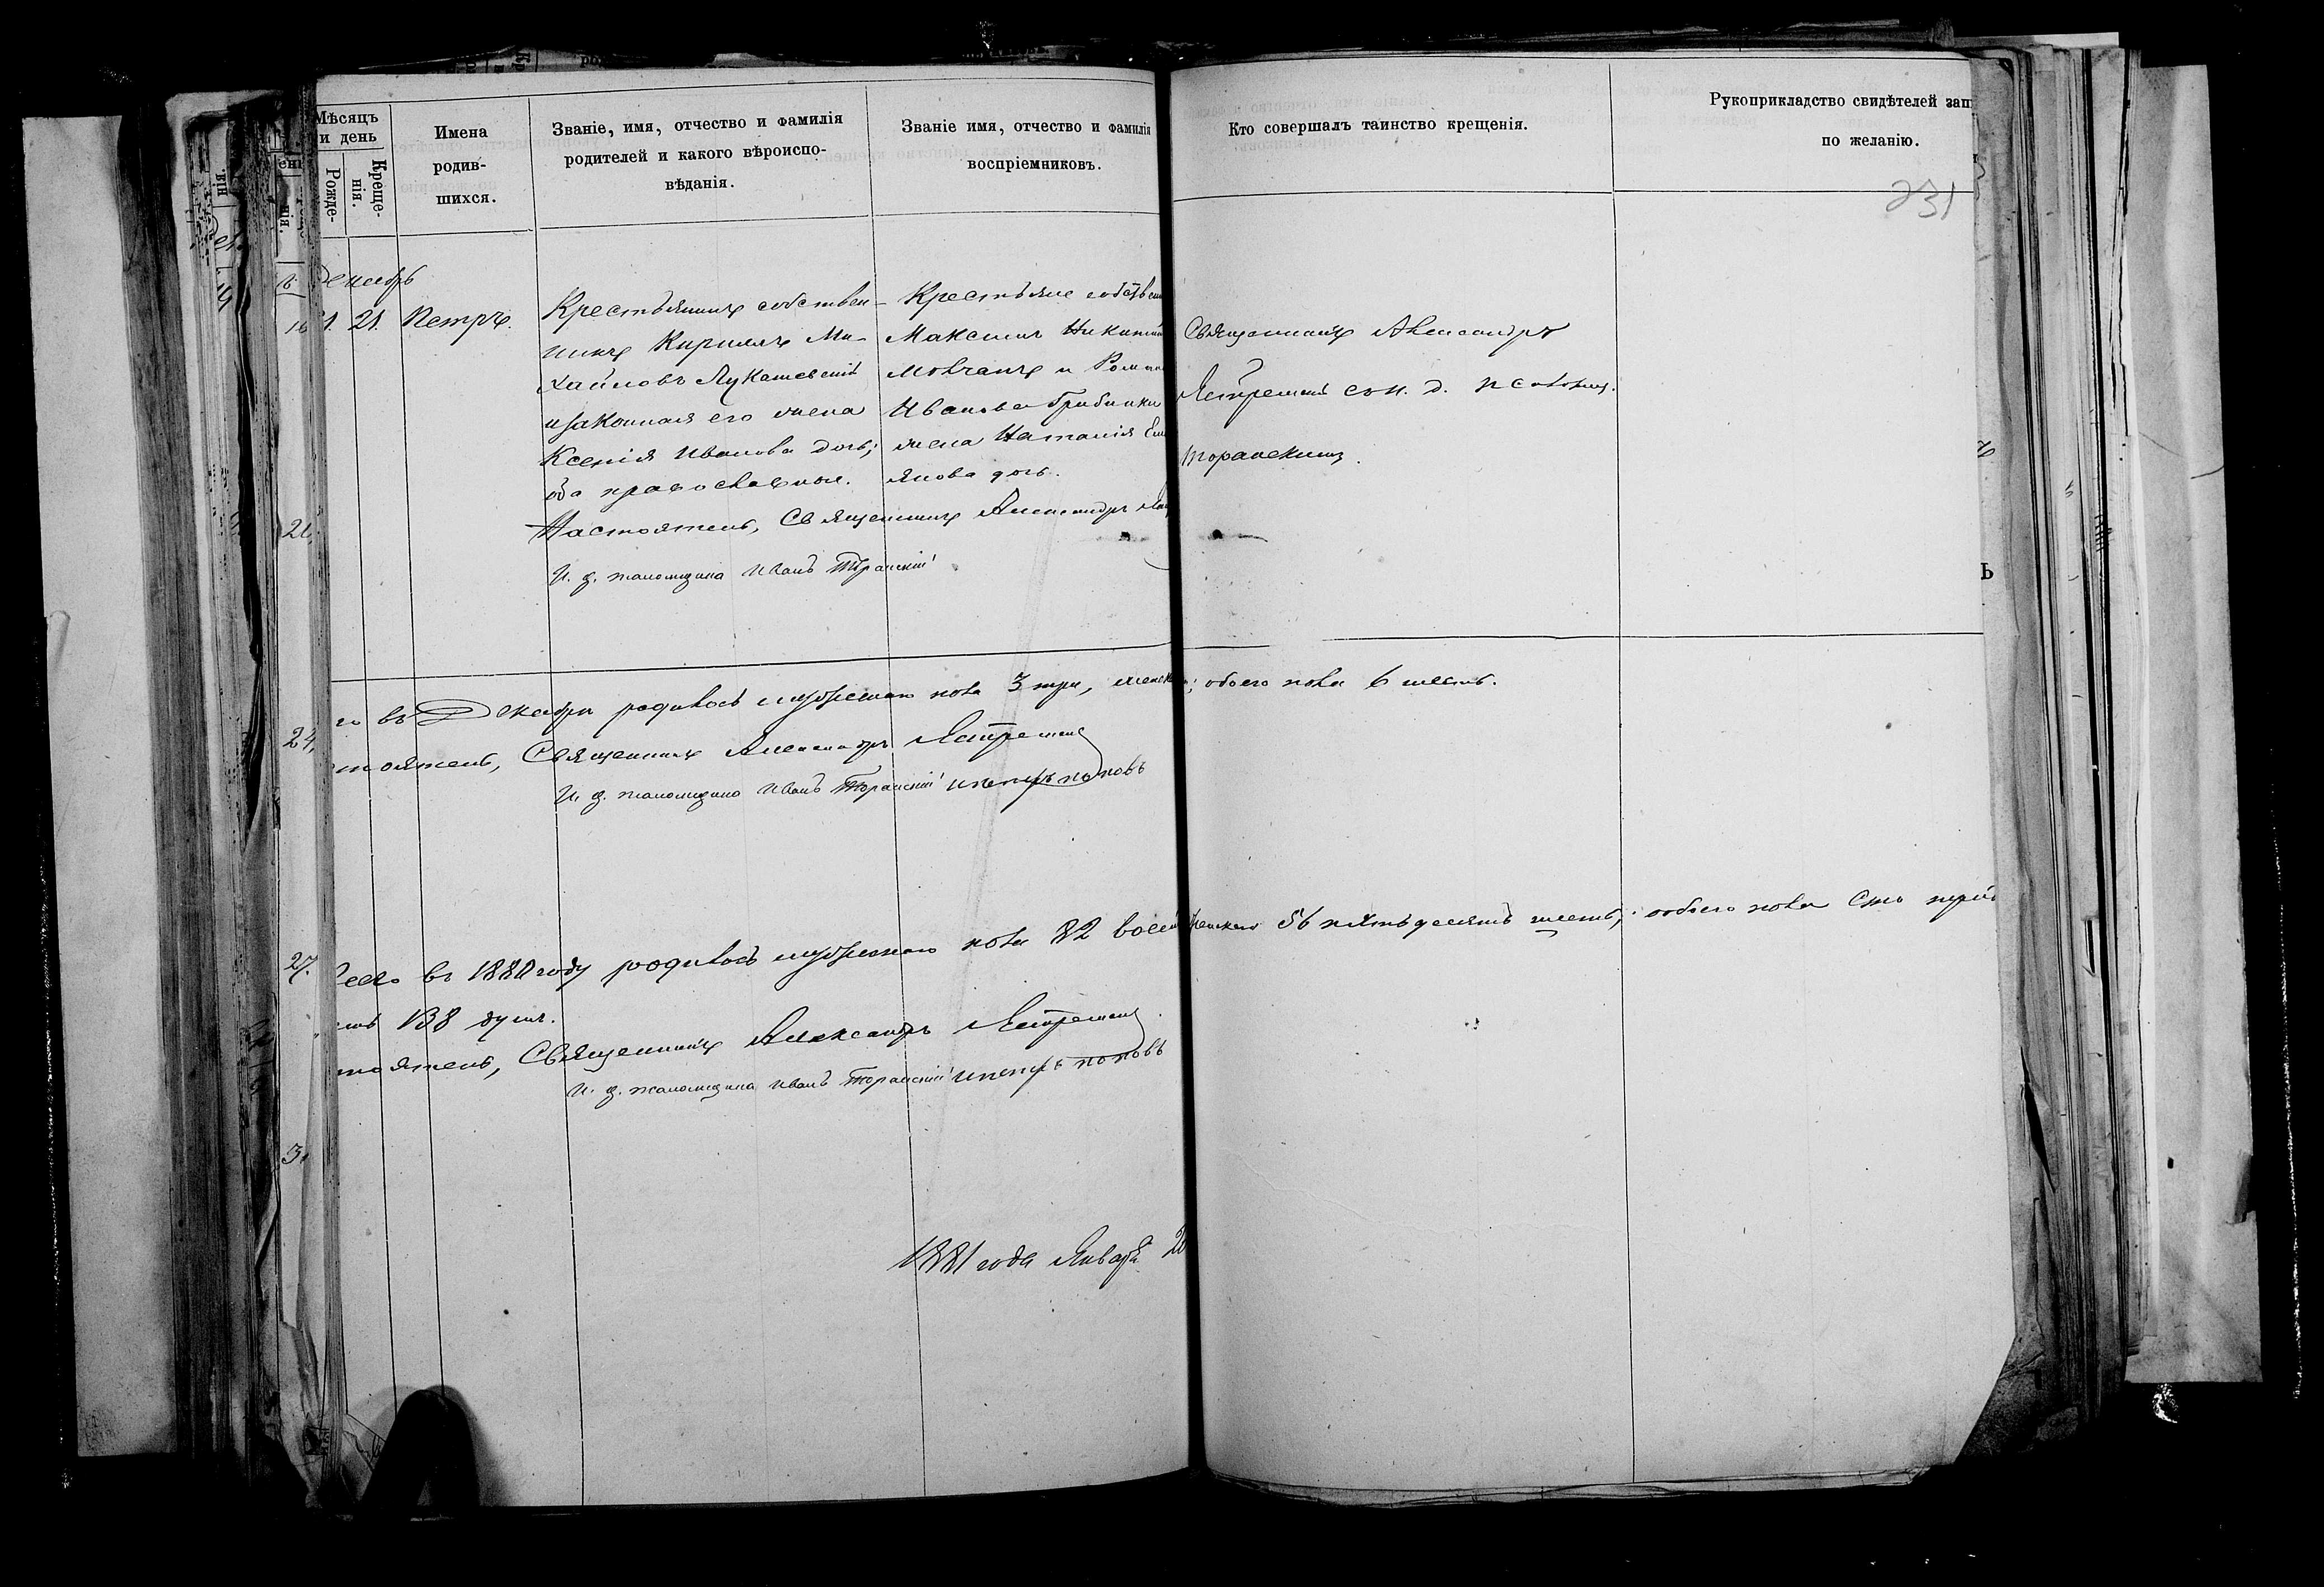 Мѣсяцъ
и день
Рожде-
Креще-
нія.
Имена
родив-
шихся.
Званіе, имя, отчество и фамилія
родителей и какого вѣроиспо-
вѣданія.
Званіе имя, отчество и фамилія
воспріемниковъ.
Кто совершалъ таинство крещенія.
Рукоприкладство свидѣтелей зап
по желанію.
231
Декабрь
21. Петръ.
Крестьянинъ собствен-
никъ Кириллъ Ми-
хайловъ Лукашевскій
и законная его жена
Ксенія Иванова дочь;
оба православные.
Крестьяне собствен
Максимъ Никитин
Мовчанъ и Роман
Иванова Грибинки
жена Наталія Еме
янова дочь.
Священникъ Александръ
сои. д. псаломщ.
Торанскимъ.
Настоятель, Священникъ Александръ
И. д. псаломщика Иванъ Торанскій
го въ Декабрѣ родилось мужескаго пола 3 три, женск ; обоего пола 6 шесть.
тоятель, Священникъ Александръ
И. д. псаломщика Иванъ Торанскій и Петръ Поповъ
Всего въ 1880 году родилось мужескаго пола 82 восем женскаго 56 пятьдесятъ шесть; обоего пола сто
138 душъ.
тоятель, Священникъ Александръ
И. д. псаломщика Иванъ Торанскій и Петръ Поповъ
1881 года Января 20